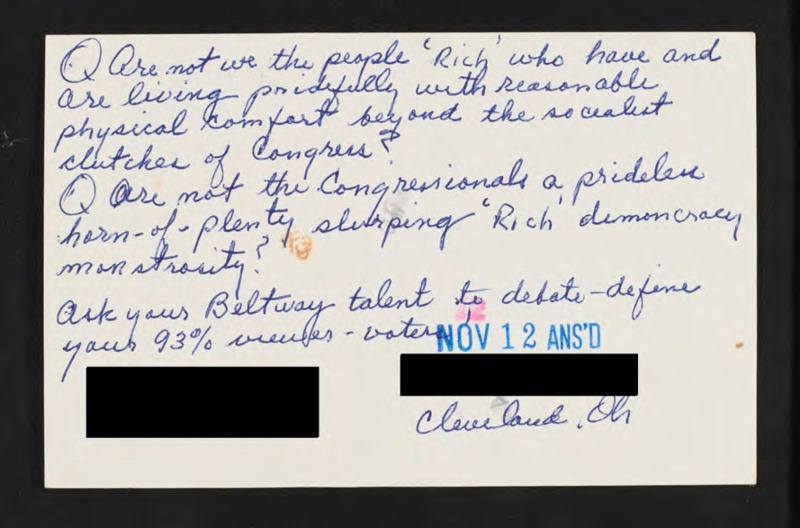 Q Are not we the people 'Rich' who have and
are living pridefully with reasonable
physical comfort beyond the socialist
clutches of Congress?
Q Are not the Congressionals a prideless
horn-of-plenty slurping 'Rich' demoncracy
monstrosity?
Ask your Beltway talent to debate-define
your 93% viewer-voters!
NOV 12 ANS'D
Cleveland, Oh